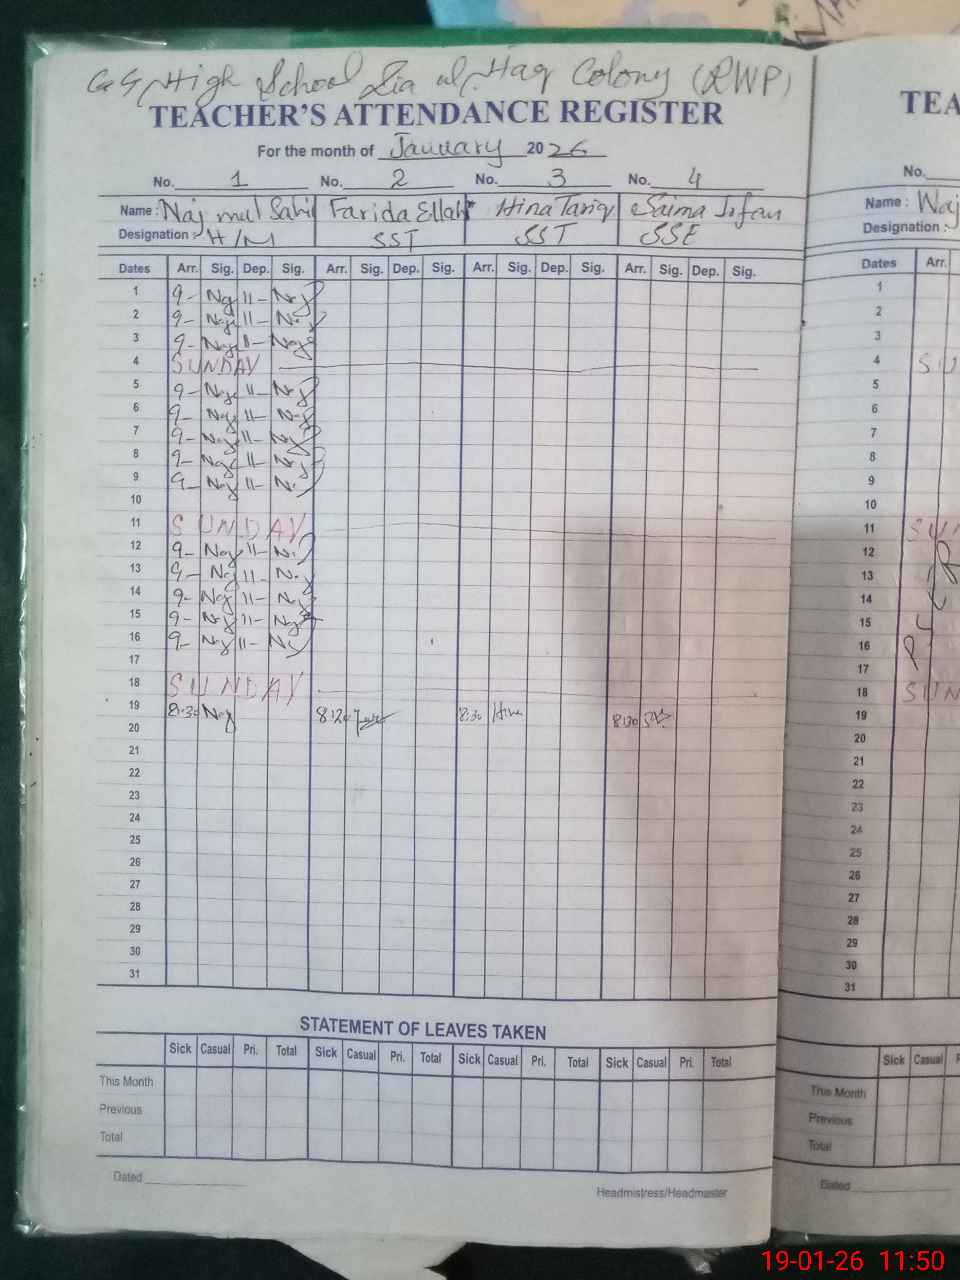 GG High School Zia ul Haq Colony (RWP)
TEACHER'S ATTENDANCE REGISTER
For the month of January 2026
No. 1 No. 2 No. 3 No. 4
Name: Najmul Sahi Farida Ellahi Hina Tariq Saima Irfan
Designation:- H/M SST SST SSE
Dates Arr. Sig. Dep. Sig. Arr. Sig. Dep. Sig. Arr. Sig. Dep. Sig. Arr. Sig. Dep. Sig.
1 9- Naj 11- Naj
2 9- Naj 11- Naj
3 9- Naj 11- Naj
4 SUNDAY
5 9- Naj 11- Naj
6 9- Naj 11- Naj
7 9- Naj 11- Naj
8 9- Naj 11- Naj
9 9- Naj 11- Naj
10
11 SUNDAY
12 9- Naj 11- Naj
13 9- Naj 11- Naj
14 9- Naj 11- Naj
15 9- Naj 11- Naj
16 9- Naj 11- Naj
17
18 SUNDAY
19 8:30 Naj 8:20 8:30 Hina 8:30
20
21
22
23
24
25
26
27
28
29
30
31
STATEMENT OF LEAVES TAKEN
Sick Casual Pri. Total Sick Casual Pri. Total Sick Casual Pri. Total Sick Casual Pri. Total
This Month
Previous
Total
Dated
Headmistress/Headmaster
TEA
No.
Name: Waj
Designation:-
Dates Arr.
1
2
3
4 SU
5
6
7
8
9
10
11 SUN
12
13
14
15
16
17
18 SUN
19
20
21
22
23
24
25
26
27
28
29
30
31
Sick Casual P
This Month
Previous
Total
Dated
19-01-26 11:50